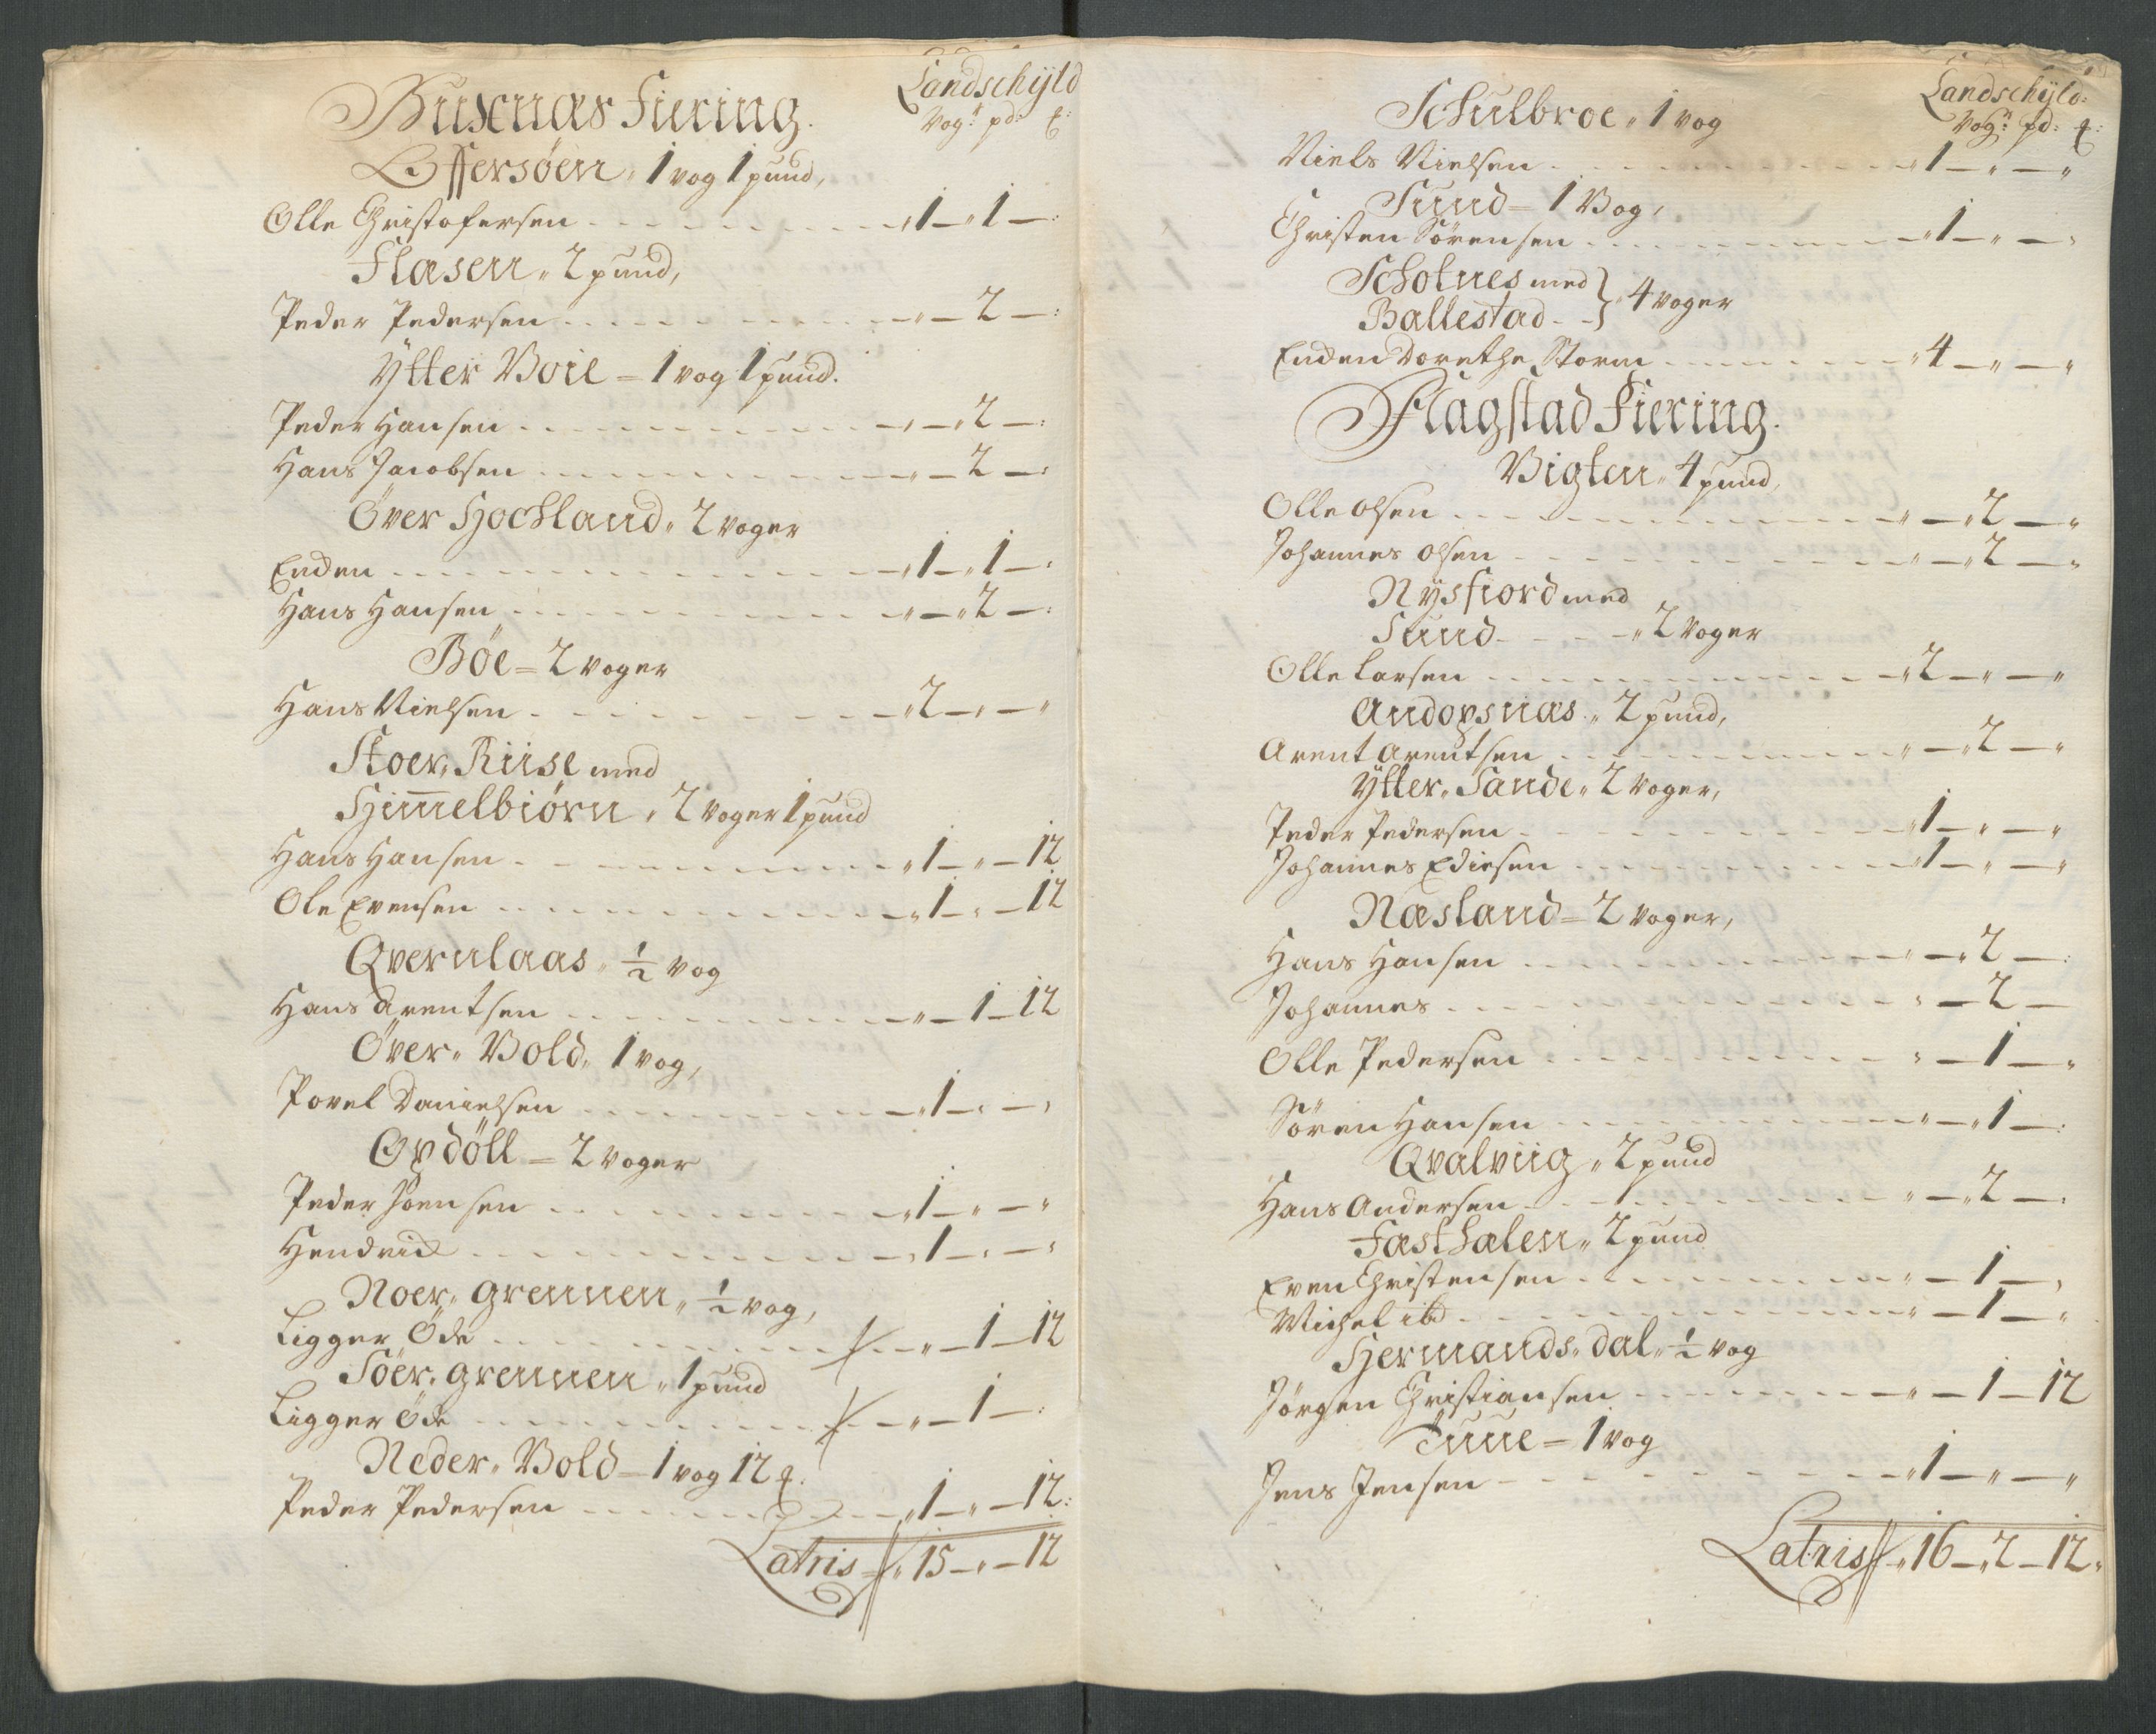 Buxnæs Fiering.
Landschÿld
Vogr pd: ℔:
Offersöen " 1 vog 1 pund,
Olle Christofersen - - - " 1 - " 1 - :
Flæsen " 2 pund,
Peder Pedersen - - - " - 2 - :
Ÿtter Boie = 1 vog 1 pund.
Peder Hansen - - - " - " 2 - :
Hans Jacobsen - - - " - 2 - :
Över Hochland " 2 voger
Enden - - - " 1 - " 1 - :
Hans Hansen - - - " - " 2 - :
Böe = 2 voger
Hans Nielsen - - - " 2 - " - "
Stoer, Riise med
Him̄elbiörn " 2 voger 1 pund
Hans Hansen - - - " 1 - " - 12
Ole Evensen - - - " 1 - " - 12
Qvernlaas " ½ vog
Hans Arentsen - - - " - 1 - 12
Över " Bold " 1 vog,
Povel Danielsen - - - " 1 - " - "
Opdöll = 2 voger
Peder Joensen - - - " 1 - " - "
Hendrich - - - " 1 - " - "
Noer " grennen " ½ vog,
Ligger Öde - - - " - 1 - 12
Söer " grennen " 1 pund
Ligger Öde - - - " - 1 - :
Neder " Bold = 1 vog 12 ℔.
Peder Pedersen - - - " 1 - " - 12:
Latris " 15 - " - 12
Schulbroe " 1 vog
Landschÿld:
Vogr: pd: ℔:
Niels Nielsen - - - " 1 - " - "
Sund = 1 Vog,
Christen Sörensen - - - " 1 - " - "
Scholnes med
Ballestad - - } " 4 voger
Enden Dorethe Storm - - - " 4 - " - "
Flagstad Fiering.
Vigten " 4 pund,
Olle Olsen - - - " - " 2 - "
Johannes Olsen - - - " - " 2 - "
Nÿsfiord med
Sund - - - " 2 Voger
Olle Larsen - - - " 2 - " - "
Andopsnæs " 2 pund,
Arent Arentsen - - - " - " 2 - "
Ÿtter " Sande " 2 Voger,
Peder Pedersen - - - " 1 - " - "
Johannes Edisen - - - " 1 - " - "
Næsland = 2 voger,
Hans Hansen - - - " - " 2 - :
Johannes - - - " - 2 -
Olle Pedersen - - - " - 1 - "
Sören Hansen - - - " - " 1 - :
Qvalviig " 2 pund
Hans Andersen - - - " - " 2 - :
Fasthalen " 2 pund
Even Christensen - - - " - 1 - ,
Michel ibd - - - " - 1 - "
Hermands " dal " ½ vog
Jörgen Christiansen - - - " - 1 - 12
Tuue = 1 vog
Jens Jensen - - - " 1 - " - "
Latris " 16 - " 2 - 12 "